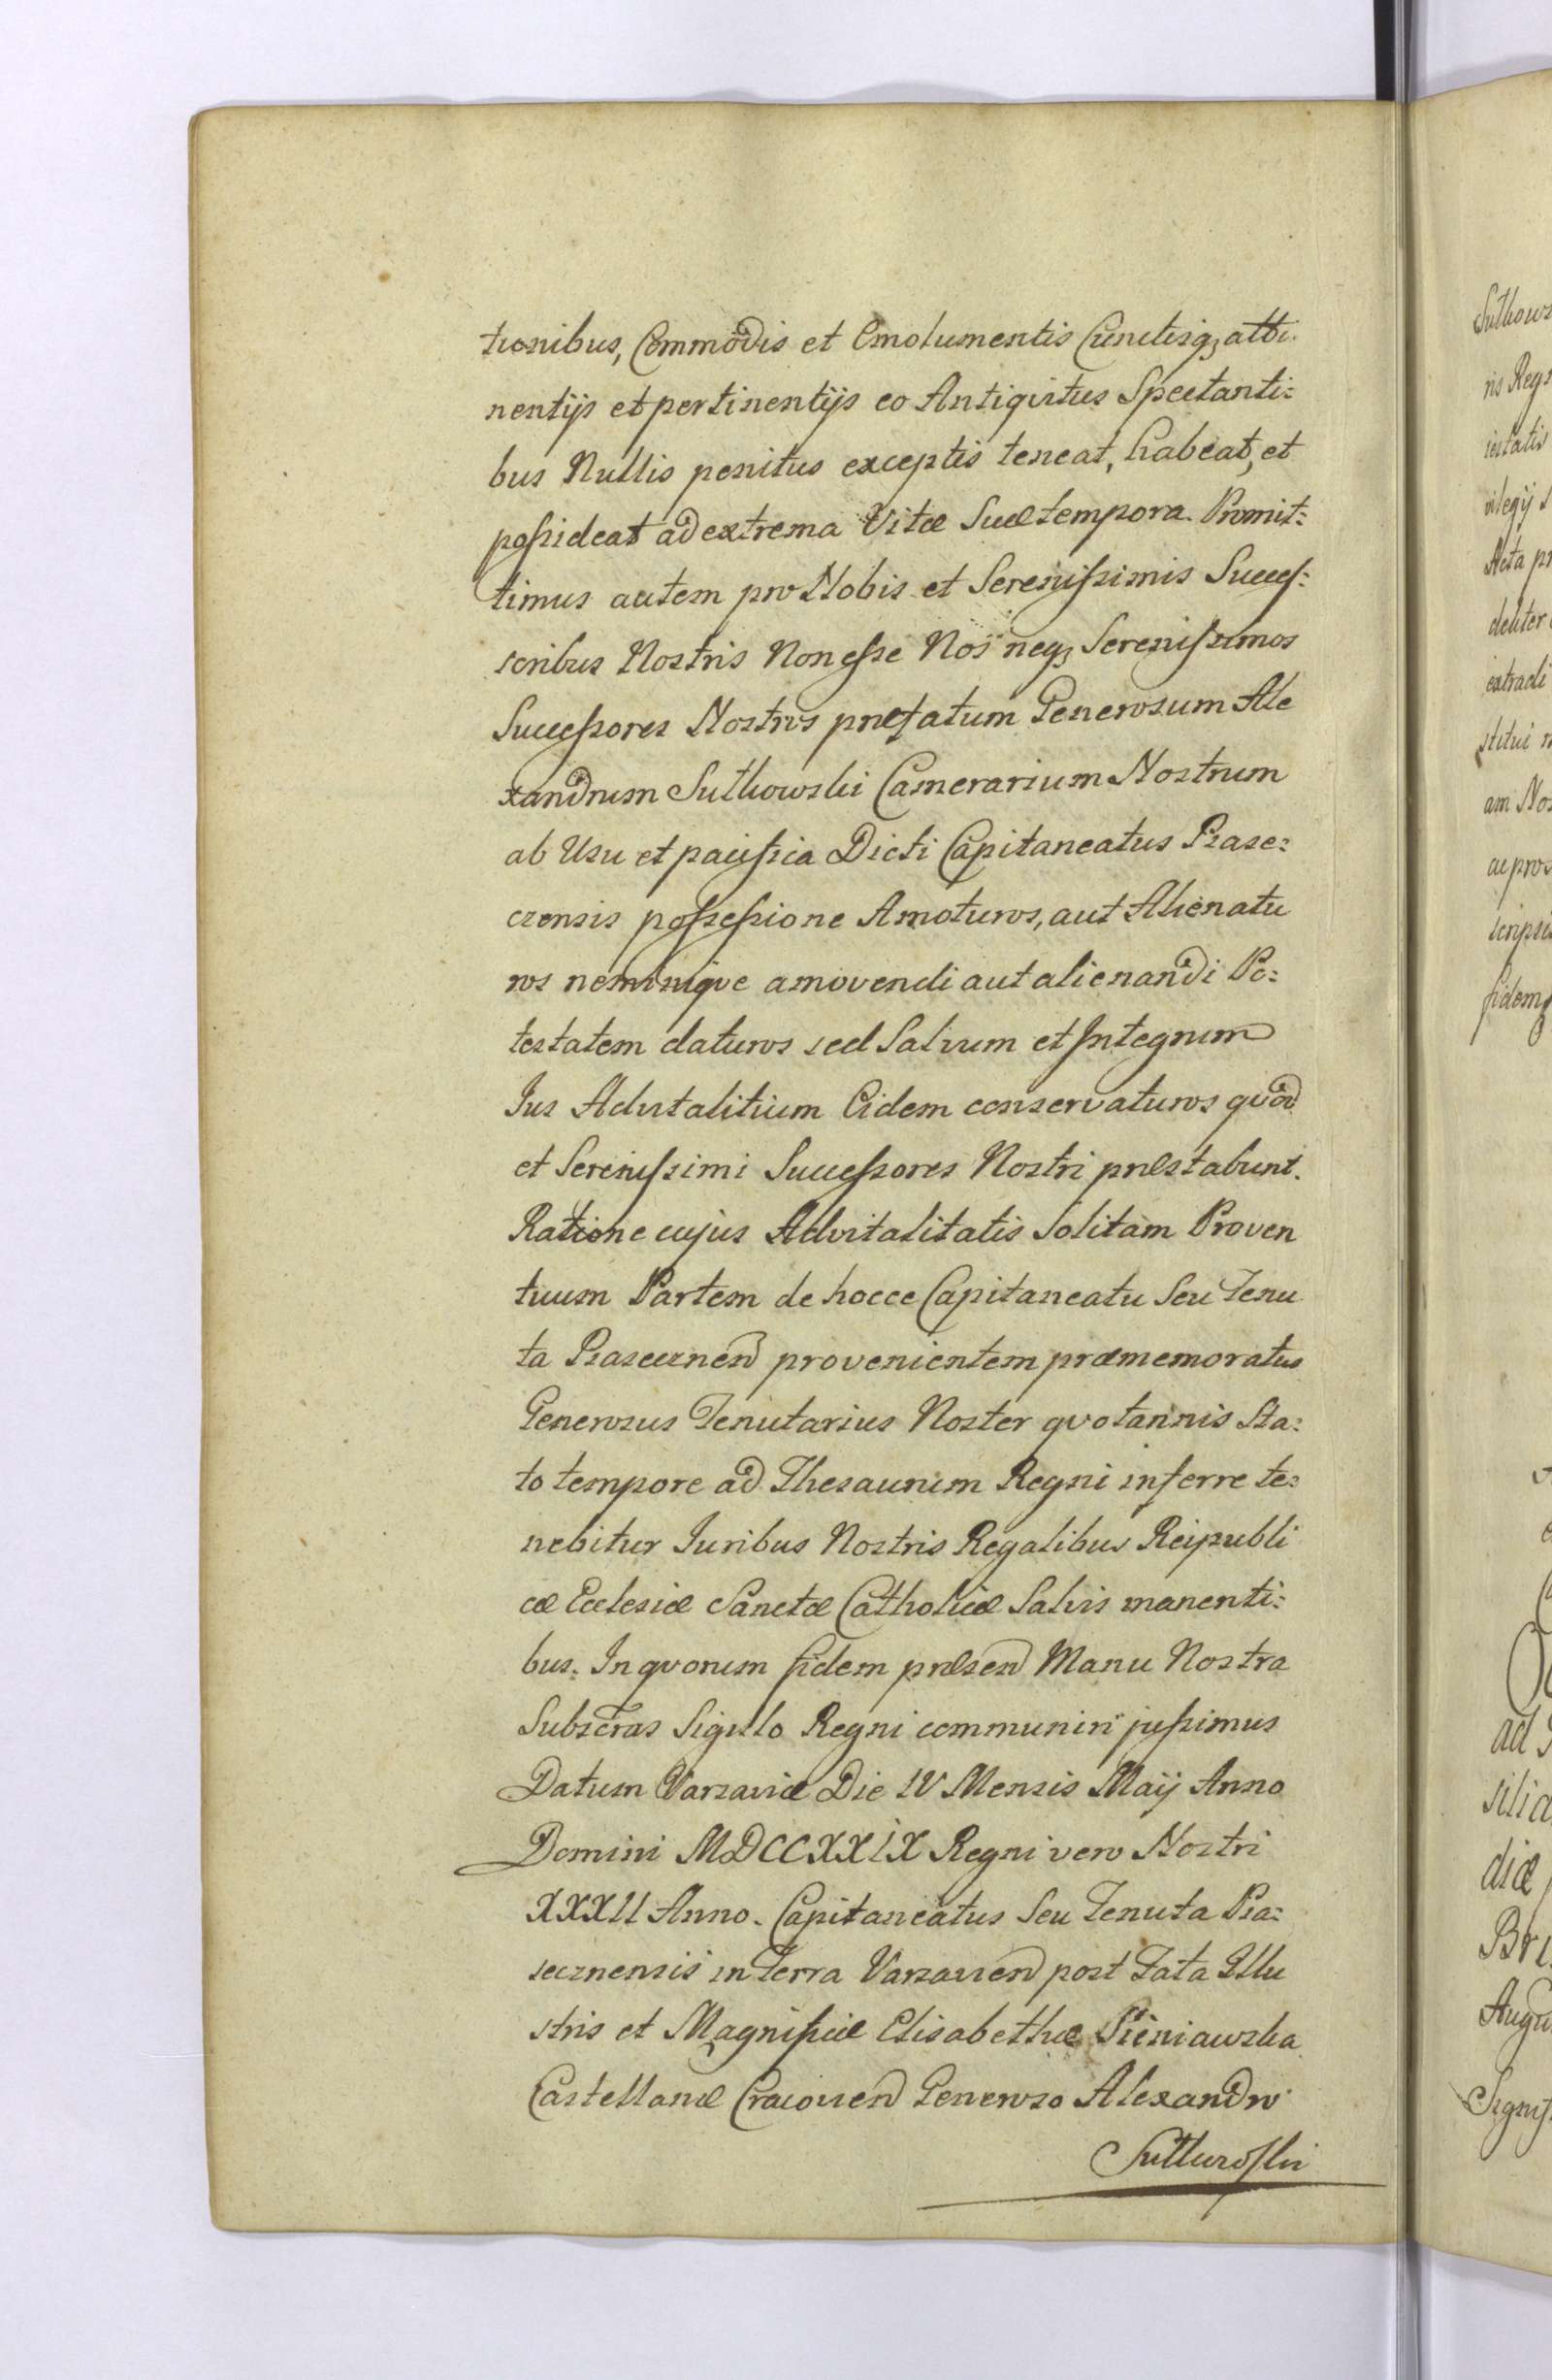 tionibus, Commodis et Emolumentis Cunctisq₃ atti-
nentijs et pertinentijs eo Antiqvitus Spectanti:
bus Nullis penitus exceptis teneat, habeat, et
poſsideat ad extrema Vitæ Suæ tempora. Promit:
timus autem pro Nobis et Sereniſsimis Succeſ:
soribus Nostris Non eſse Nos neq₃ Sereniſsimos
Succeſsores Nostros præfatum Generosum Ale
xandrum Sutkowski Camerarium Nostrum
ab Usu et pacifica Dicti Capitaneatus Piase:
cznensis poſseſsione Amoturos, aut Alienatu
ros neminiqve amovendi aut alienandi Po:
testatem daturos sed Salvum et Integrum
Jus Advitalitium Eidem conservaturos qvod
et Sereniſsimi Succeſsores Nostri præstabunt.
Ratione cujus Advitalitatis Solitam Proven
tuum Partem de hocce Capitaneatu Seu Tenu
ta Piasecznen provenientem præmemoratus
Generosus Tenutarius Noster qvotannis Sta:
to tempore ad Thesaurum Regni inferre te:
nebitur Juribus Nostris Regalibus Reipubli
cæ Ecclesiæ Sanctæ Catholicæ Salvis manenti:
bus. In qvorum fidem præsen Manu Nostra
Subscras Sigillo Regni communiri juſsimus
Datum Varsaviæ Die IV Mensis Maij Anno
Domini MDCCXXIX Regni vero Nostri
XXXII Anno. Capitaneatus Seu Tenuta Pia:
secznensis in Terra Varsavien post Fata Illu
stris et Magnificæ Elisabethæ Sieniawska
Castellanæ Cracovien Generoso Alexandro
Sutkowski